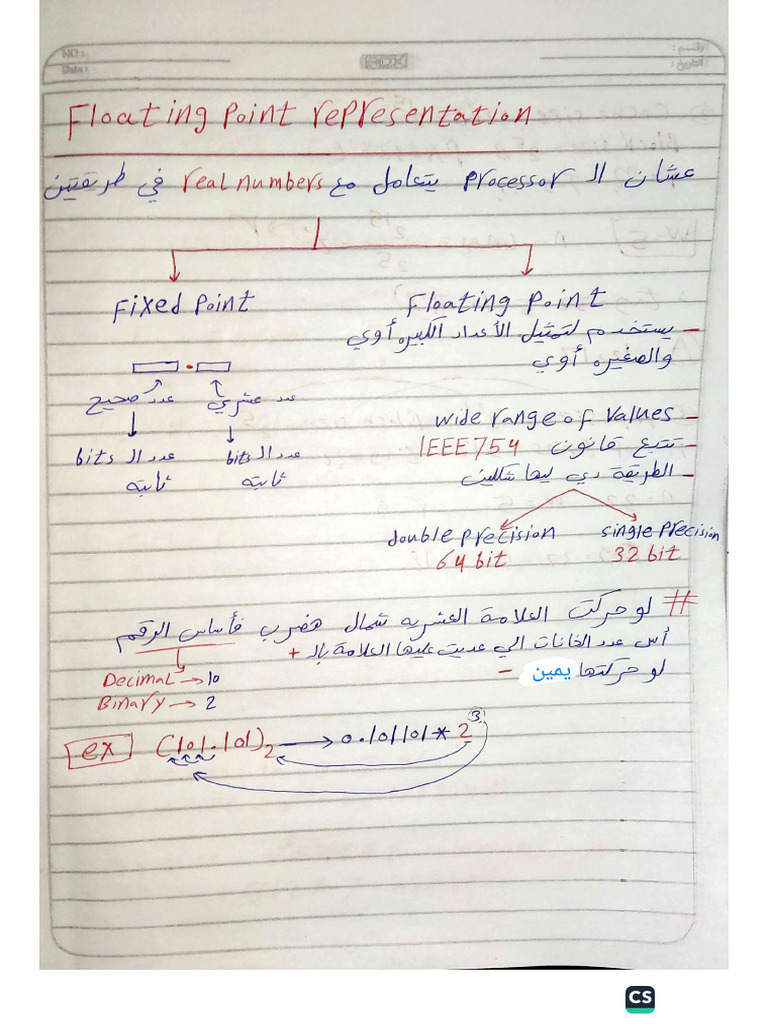 NO :
Date :
رقم :
التاريخ :
Floating Point representation
عشان الـ Processor يتعامل مع real numbers في طريقتين
Fixed Point
عدد صحيح
عدد عشري
عدد الـ bits
ثابتة
عدد الـ bits
ثابته
Floating Point
– يستخدم لتمثيل الأعداد الكبيره أوي
والصغيره أوي
– wide range of values
– تتبع قانون IEEE754
– الطريقة دي ليها شكلين
double precision
64 bit
single precision
32 bit
# لو حركت العلامة العشريه شمال هضرب فأساس الرقم
أس عدد الخانات الي عديت عليها العلامة بالـ +
لو حركتها يمين –
Decimal → 10
Binary → 2
ex (101.101)₂ → 0.101101 * 2³
CS